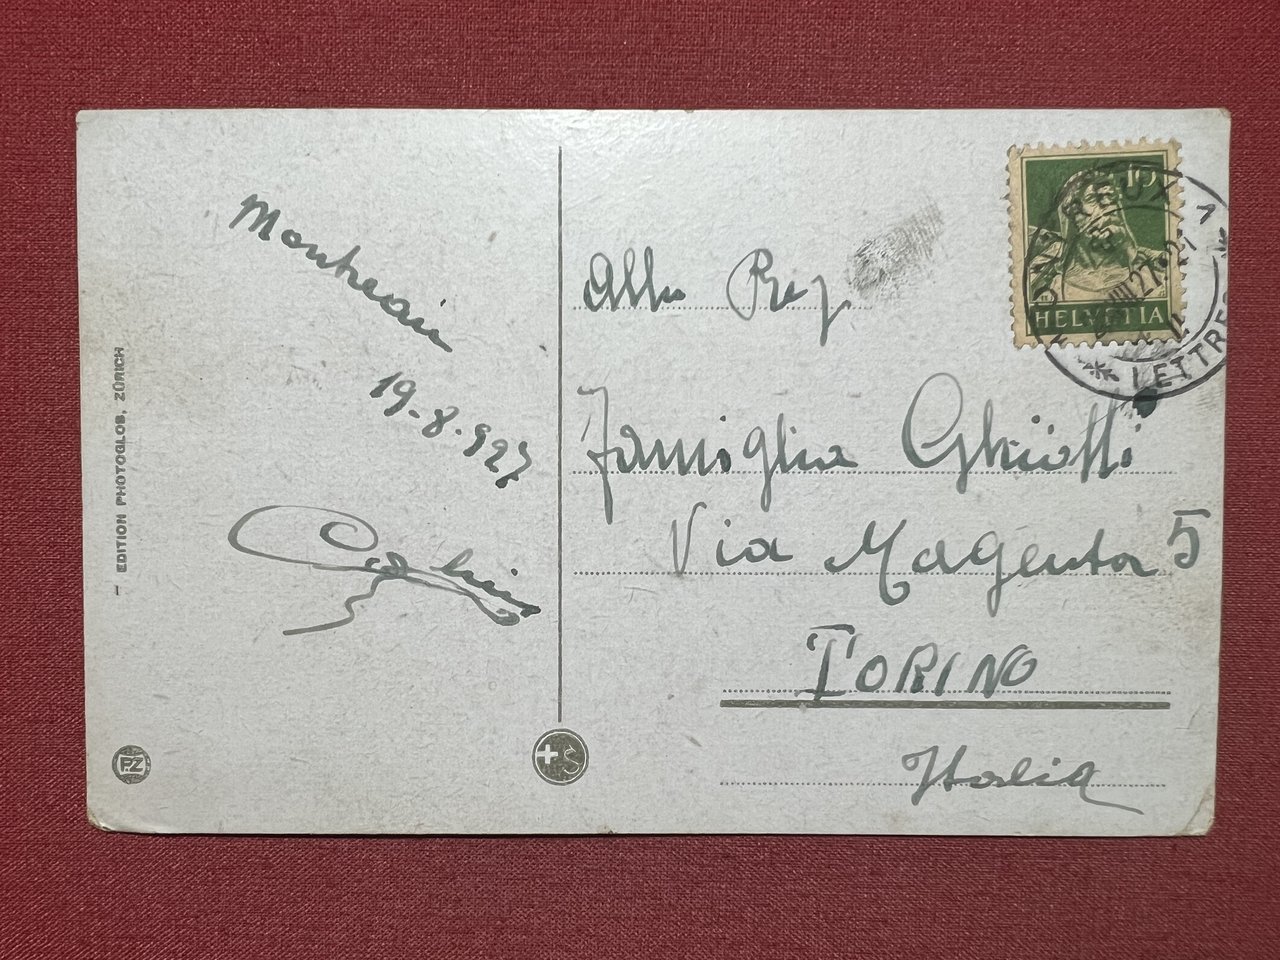 EDITION PHOTOGLOB, ZÜRICH
PZ
Montreaux
19-8-927
+S
10
HELVETIA
MONTREUX 1
LETTRES
Alla Preg
Famiglia Ghiotti
Via Magenta 5
TORINO
Italia